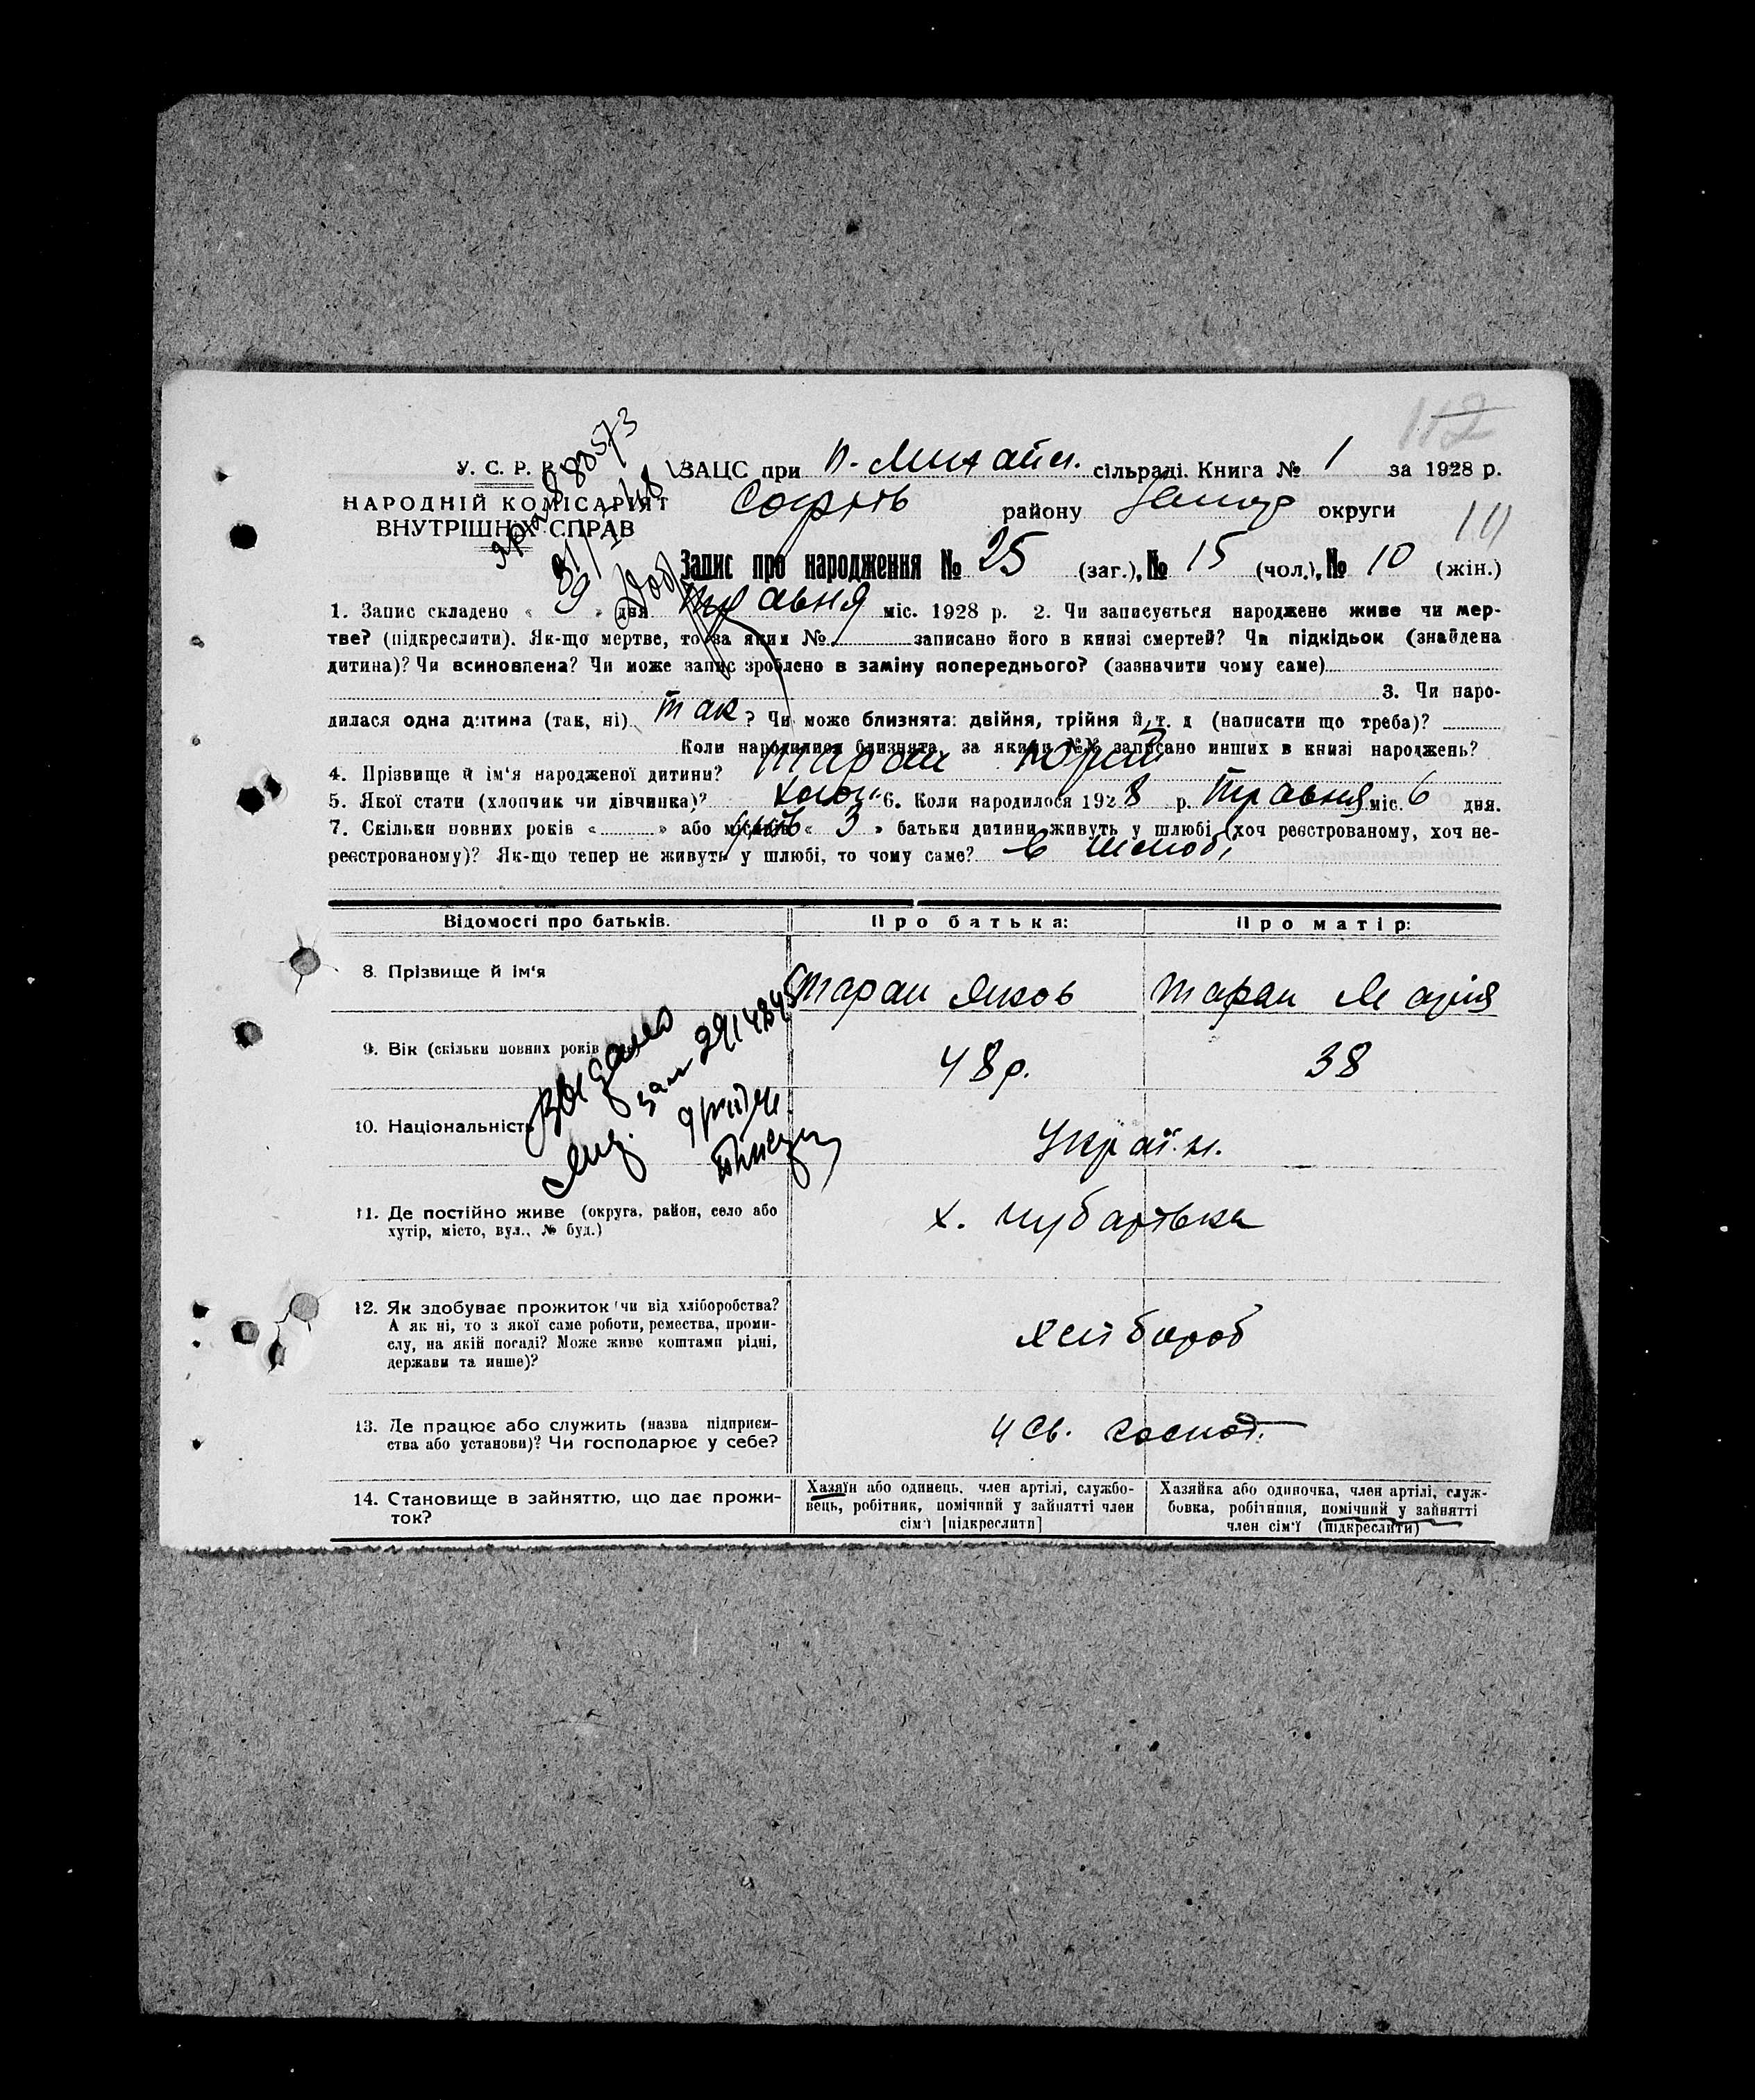 112
У. С. Р. Р. ЗАЦС при н-Михайл. сільраді. Книга № 1 за 1928 р.
НАРОДНІЙ КОМІСАРІЯТ
ВНУТРІШНІХ СПРАВ
Софіїв району Запор округи
Запис про народження № 25 (заг.), № 15 (чол.), № 10 (жін.)
1. Запис складено « 9 » дня Травня міс. 1928 р. 2. Чи записується народжене живе чи мер-
тве? (підкреслити). Як-що мертве, то за яким № записано його в книзі смертей? Чи підкідьок (знайдена
дитина)? Чи всиновлена? Чи може запис зроблено в заміну попереднього? (зазначити чому саме)
3. Чи наро-
дилася одна дитина (так, ні) так ? Чи може близнята: двійня, трійня й т. д (написати що треба)?
Коли народилися близнята, за якими №№ записано инших в книзі народжень?
4. Прізвище й ім'я народженої дитини? Таран Юрій
5. Якої стати (хлопчик чи дівчинка)? хлоп. 6. Коли народилося 1928 р. Травня міс. 6 дня.
7. Скільки повних років « » або місяців « 3 » батьки дитини живуть у шлюбі (хоч реєстрованому, хоч не-
реєстрованому)? Як-що тепер не живуть у шлюбі, то чому саме? в шлюбі
Відомості про батьків. Про батька: Про матір:
8. Прізвище й ім'я Таран Яков Таран Марія
9. Вік (скільки повних років 48 р. 38
10. Національність Україн.
11. Де постійно живе (округа, район, село або
хутір, місто, вул., № буд.) х. Чубарівка
12. Як здобуває прожиток чи від хліборобства?
А як ні, то з якої саме роботи, ремества, проми-
слу, на якій посаді? Може живе коштами рідні,
держави та инше)? хлібороб
13. Де працює або служить (назва підприєм-
ства або установи)? Чи господарює у себе? у св. господ.
14. Становище в зайняттю, що дає прожи-
ток?
Хазяїн або одинець, член артілі, службо-
вець, робітник, помічний у зайнятті член
сім'ї [підкреслити]
Хазяйка або одиночка, член артілі, служ-
бовка, робітниця, помічний у зайнятті
член сім'ї (підкреслити)